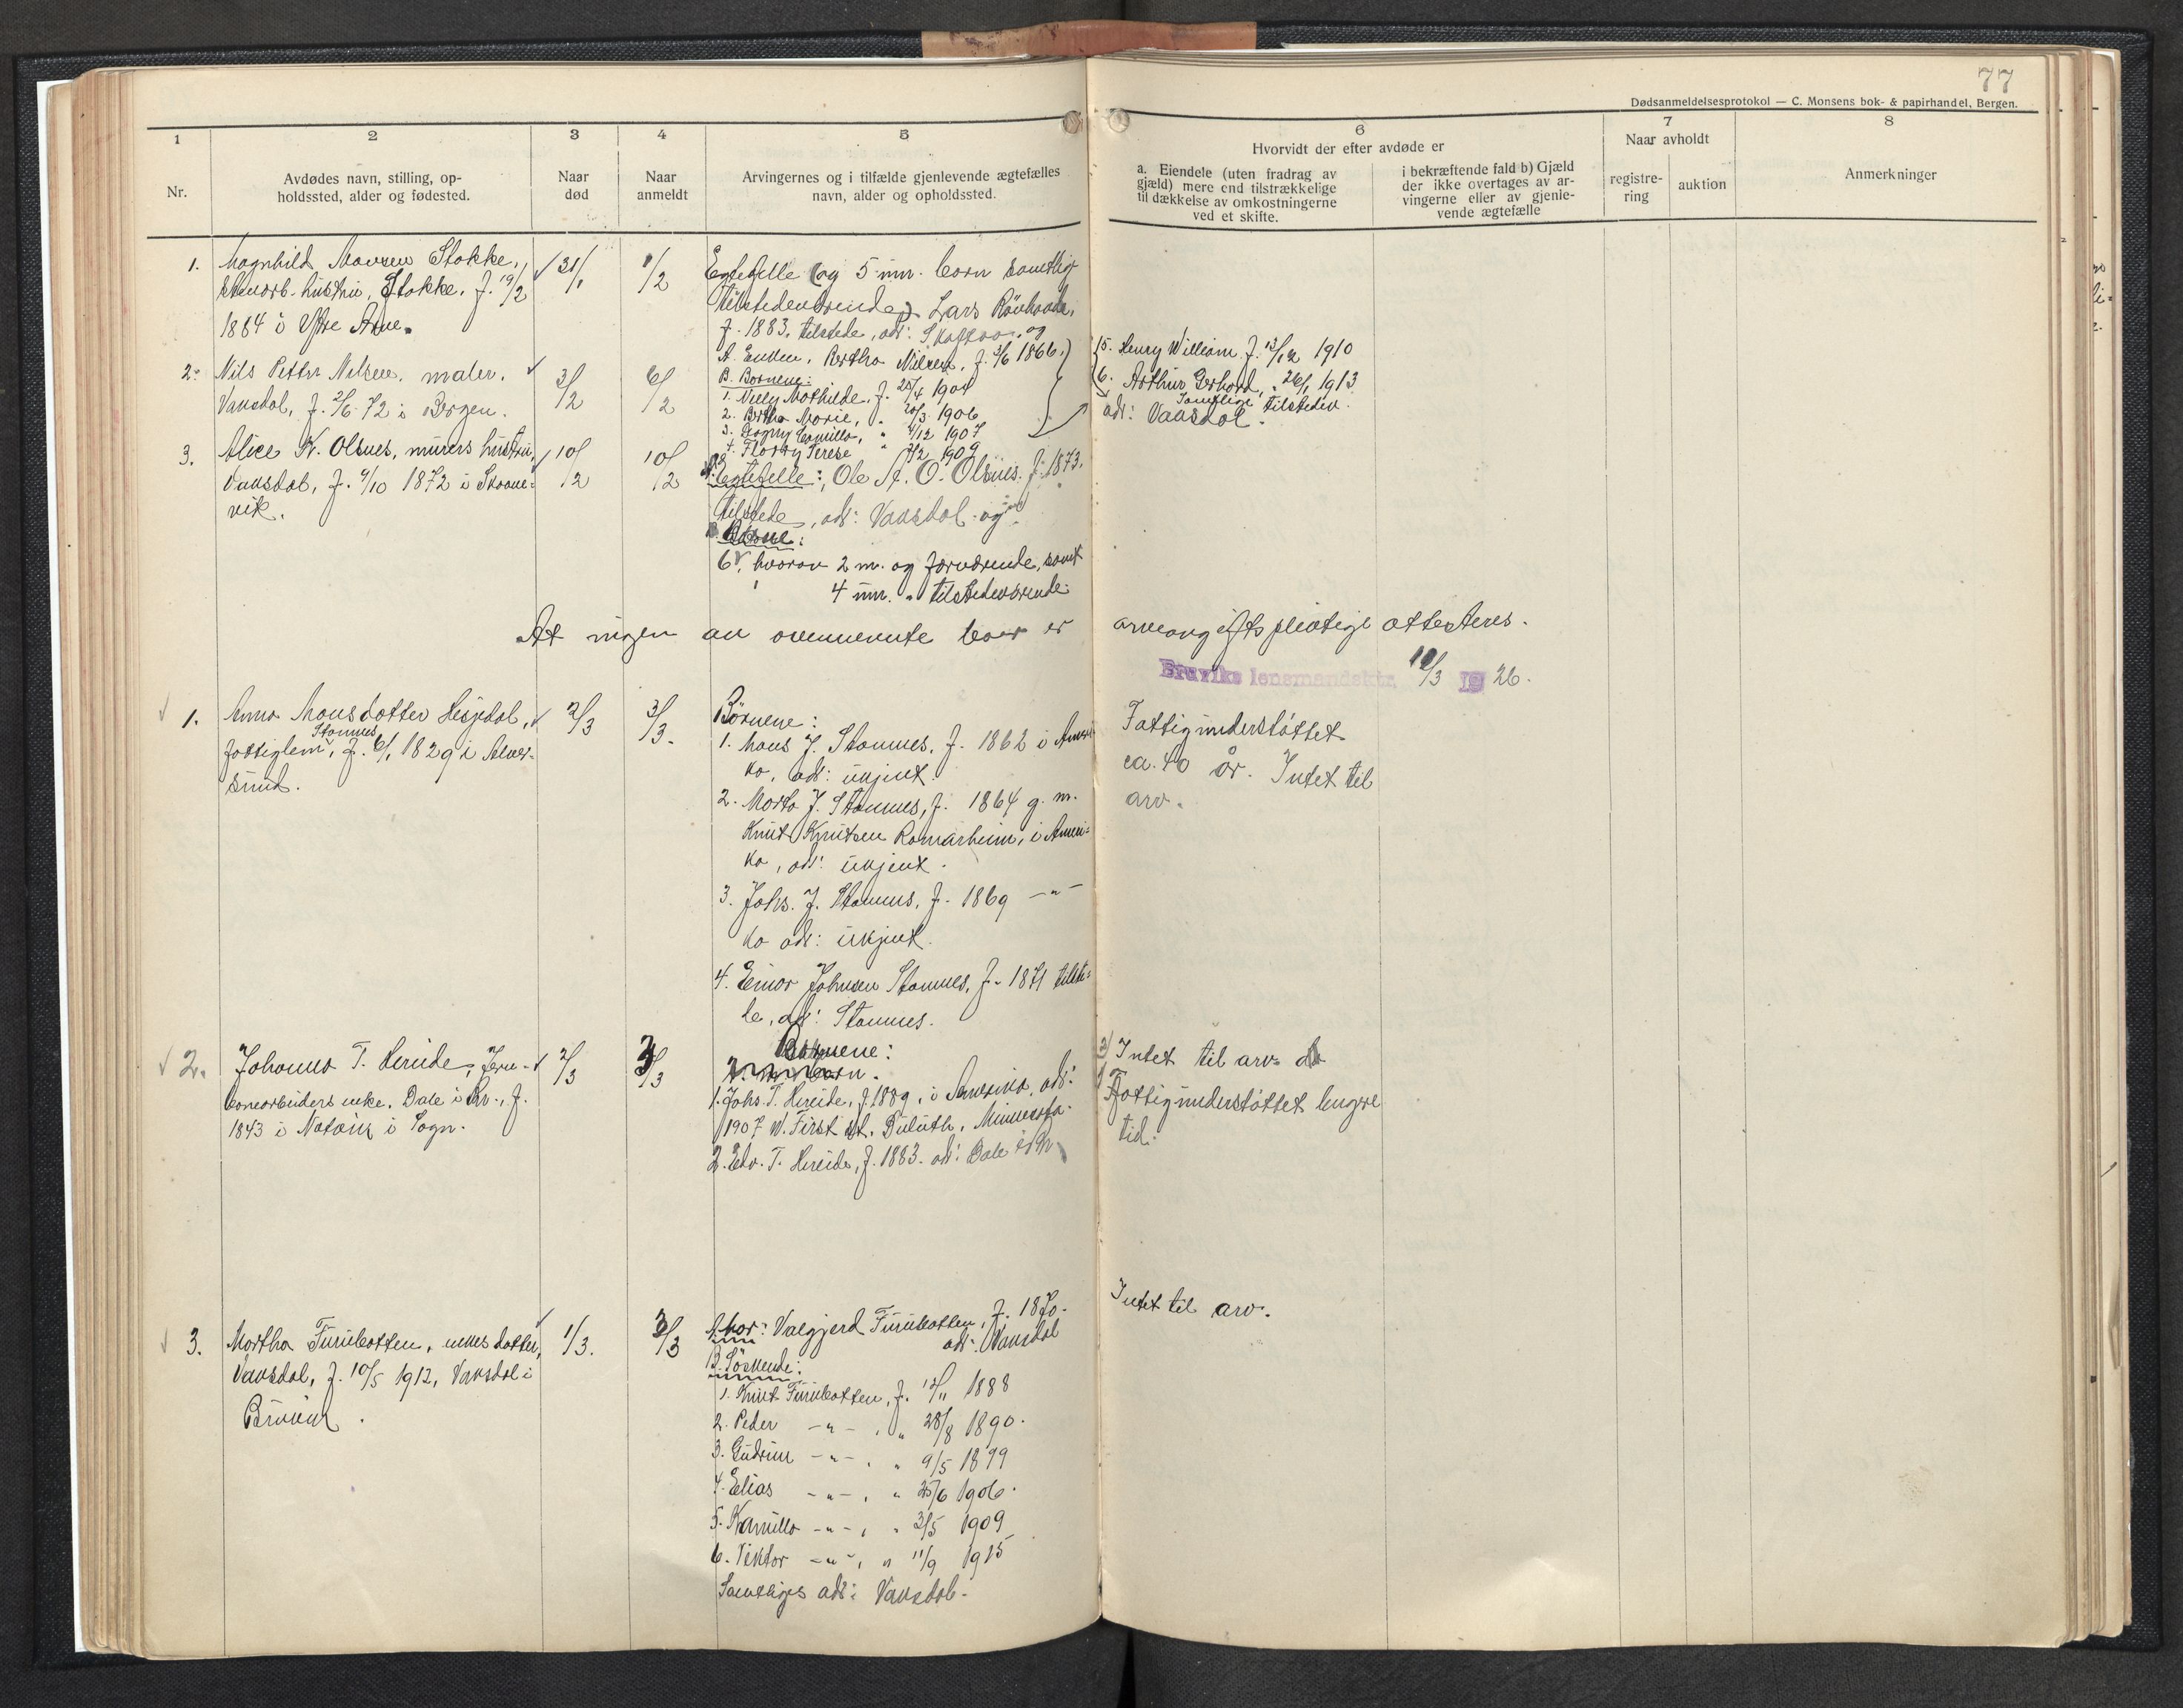 77
Dødsanmeldelsesprotokol — C. Monsens bok- & papirhandel, Bergen.
1
2
3
4
5
6
7
8
Nr.
Avdødes navn, stilling, op-
holdssted, alder og fødested.
Naar
død
Naar
anmeldt
Arvingernes og i tilfælde gjenlevende ægtefælles
navn, alder og opholdssted.
Hvorvidt der efter avdøde er
a. Eiendele (uten fradrag av
gjæld) mere end tilstrækkelige
til dækkelse av omkostningerne
ved et skifte.
i bekræftende fald b) Gjæld
der ikke overtages av ar-
vingerne eller av gjenle-
vende ægtefælle
Naar avholdt
registre-
ring
auktion
Anmerkninger
1. Magnhild Monsen Stokke,
hustru, Stokke, f. 19/2
1884 i Ytre Arne.
31/1
1/2
Egtefelle (og 5 um. born samtlig
tilstedeværende) Lars
f. 1883, tilstede, adr:
2. Nils Petter Nilsen, maler,
Vaksdal, f. 2/6 72 i Bergen.
3/2
6/2
A. Enken, Bertha Nilsen, f. 3/6 1866,
B. Bornene:
1. Nelly Mathilde, f. 25/4 1904
2. Brtha Marie, " 20/3 1906
3. Dagny Camilla, " 4/12 1907
4. Terese " 2/2 1909
5. Henry William f. 13/12 1910
6. Arthur Gerhard, " 26/1 1913
Samtlige tilstedev.
adr: Vaksdal.
3. Alice K. Olsnes, murers hustru,
Vaksdal, f. 9/10 1872 i Skaane=
vik.
10/2
10/2
A. Egtefelle: Ole A. O. Olsnes. f. 1873.
tilstede, adr: Vaksdal og
B. Børne:
6, hvorav 2 m. og fraværende, samt
4 um. " tilstedeværende
At ingen av ovennevnte boer er arveavgiftspliktige attesteres.
Bruviks lensmandsktr. 10/3 1926.
1. Anna Monsdotter Hesjedal,
Stamnes
fattiglem, f. 6/1 1829 i Alver-
sund.
2/3
3/3.
Börnene:
1. Mons J. Stamnes, f. 1862 i Ameri
ka, adr: ukjent.
2. Marta J. Stamnes, f. 1864 g. m.
Knut Knutsen Romarheim, i Ameri=
ka, adr: ukjent.
3. Johs. J. Stamnes, f. 1869 — " —
ka adr: ukjent.
4. Einar Johnsen Stamnes, f. 1871 tilste=
de, adr: Stamnes.
Fattigunderstöttet
ca. 40 år. Intet til
arv.
2. Johanna T. Hereide, Jern-
banearbeiders enke, Dale i Br., f.
1843 i i Sogn.
2/3
3/3
Bornene:
1. Johs. T. Hereide, f. 1889, i Amerika, adr:
1907 W. First st. Duluth, Minnesota.
2. Edv. T. Hereide, f. 1883. adr: Dale i Br
Intet til arv.
Fattigunderstöttet lengre
tid.
3. Martha Furubotten, enkes datter,
Vaksdal, f. 10/5 1912, Vaksdal i
Bruvik.
1/3.
3/3
A. Mor: Valgjerd Furubotten, f. 1870.
adr: Vaksdal
B. Söskende:
1. Knut Furubotten, f. 12/11 1888
2. Peder — " — , " 28/8 1890.
3. Gudrun — " — , " 9/5 1899
4. Elias — " — , " 25/6 1906.
5. Kamilla — " — , " 3/5 1909
6. Viktor — " — , " 11/9 1915
Samtliges adr: Vaksdal.
Intet til arv.